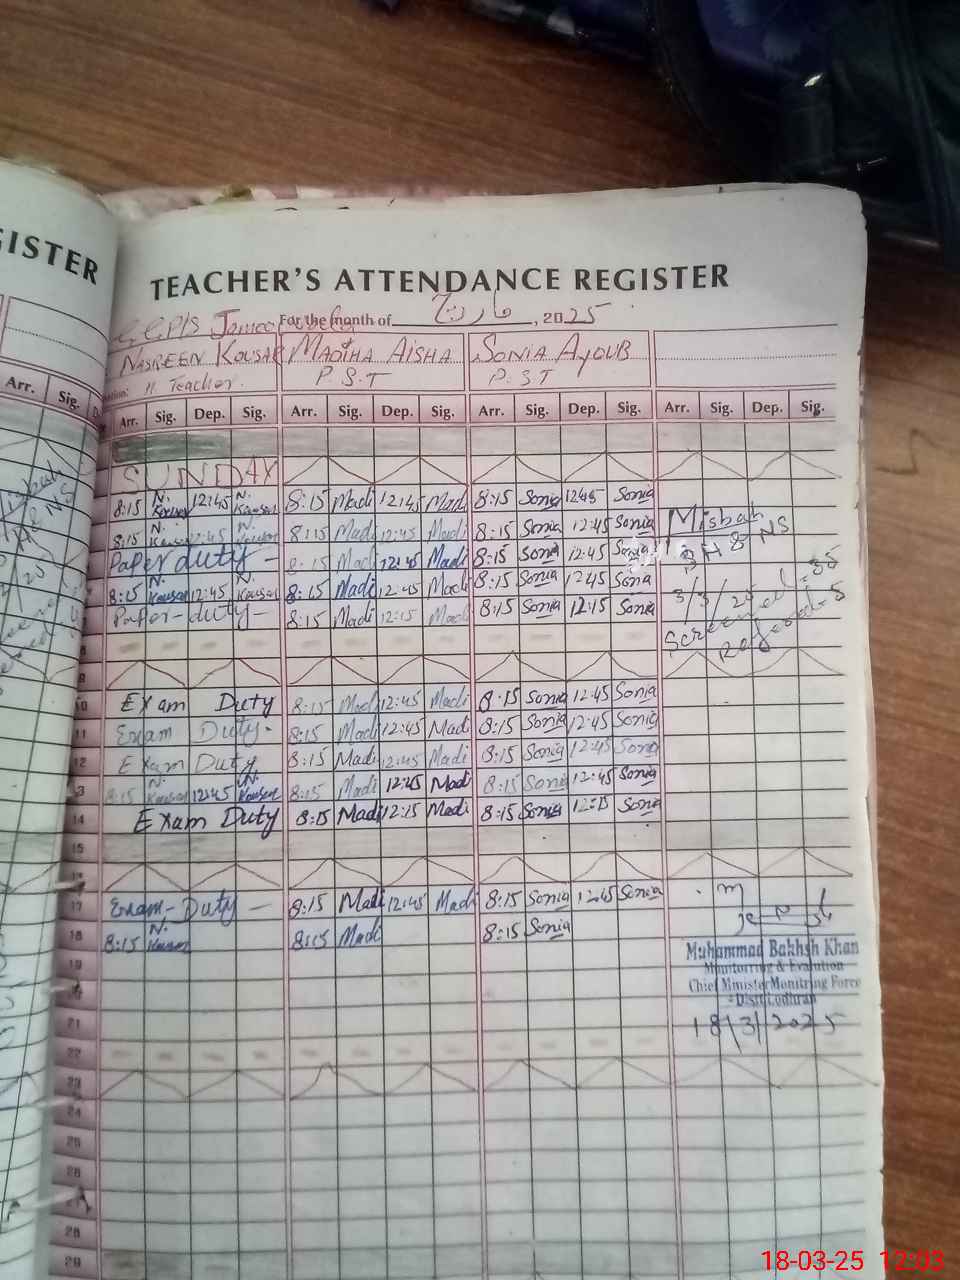 GISTER
TEACHER'S ATTENDANCE REGISTER
For the month of مارچ, 2025
NASREEN KOUSAR MADIHA AISHA SONIA AYOUB
H. Teacher. P.S.T P.S.T
Arr. Sig. Arr. Sig. Dep. Sig. Arr. Sig. Dep. Sig. Arr. Sig. Dep. Sig. Arr. Sig. Dep. Sig.
SUNDAY
8:15 N. Kousar 12:45 N. Kousar 8:15 Madi 12:45 Madi 8:15 Sonia 12:45 Sonia
8:15 N. Kousar 12:45 N. Kousar 8:15 Madi 12:45 Madi 8:15 Sonia 12:45 Sonia Misbah
Paper duty - 8:15 Madi 12:45 Madi 8:15 Sonia 12:45 Sonia SH & NS
8:15 N. Kousar 12:45 N. Kousar 8:15 Madi 12:45 Madi 8:15 Sonia 12:45 Sonia 3/3/25
Paper-duty- 8:15 Madi 12:15 Madi 8:15 Sonia 12:15 Sonia Screened-35
8 Refered-5
9
10 Exam Duty 8:15 Madi 12:45 Madi 8:15 Sonia 12:45 Sonia
11 Exam Duty. 8:15 Madi 12:45 Madi 8:15 Sonia 12:45 Sonia
12 Exam Duty 8:15 Madi 12:45 Madi 8:15 Sonia 12:45 Sonia
13 8:15 N. Kousar 12:45 N. Kousar 8:15 Madi 12:45 Madi 8:15 Sonia 12:45 Sonia
14 Exam Duty 8:15 Madi 12:15 Madi 8:15 Sonia 12:15 Sonia
15
16
17 Exam-Duty - 8:15 Madi 12:45 Madi 8:15 Sonia 12:45 Sonia
18 8:15 N. Kousar 8:15 Madi 8:15 Sonia
Muhammad Bakhsh Khan
Monitorring & Evalution
Chief MinisterMonitring Force
Distt Lodhran
18/3/2025
19
21
22
23
24
25
26
27
28
29
18-03-25 12:03